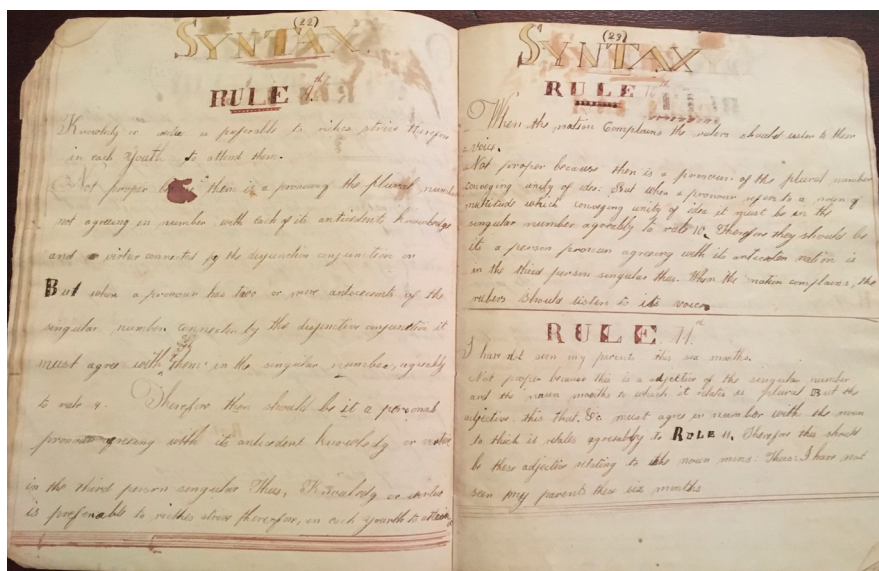 (22)
SYNTAX
RULE 9th
Knowledg or virtue is preferable to riches strive therefore
in each Youth to attend them.
Not proper them is a pronoung the plural number
not agreeing in number with each of its antecedent Knowledge
and virtue connected by the disjunctive conjunction or
But when a pronoun has two or more antecedents of the
singular number connected by the disjunctive conjunction it
must agree with them in the singular number, agreably
to rule 9. Therefore them should be it a personal
pronoun agreeing with its antecedent Knowledg or virtue
in the third person singular Thus, Knowledg or virtue
is preferable to riches strive therefor, in each youth to
(23)
SYNTAX
RULE 10th
When the nation Complains the rulers should listen to their
voice.
Not proper because their is a pronoun of the plural number
conveying unity of idea. But when a pronoun refers to a noun of
multitude which conveying unity of idea it must be in the
singular number agreably to rule 10. Therefore they should be
its a person pronoun agreeing with its antecedent nation is
in the third person singular thus. When the nation complains, the
rulers should listen to its voice
RULE 11th
I have not seen my parents this six months.
Not proper because this is a adjective of the singular number
and the noun months to which it relates is plural But the
adjective, this that, &c must agree in number with the noun
to which is relates agreeably to RULE 11, Therefore this should
be these adjective relating to the noun mons: Thus: I have not
seen my parents these six months